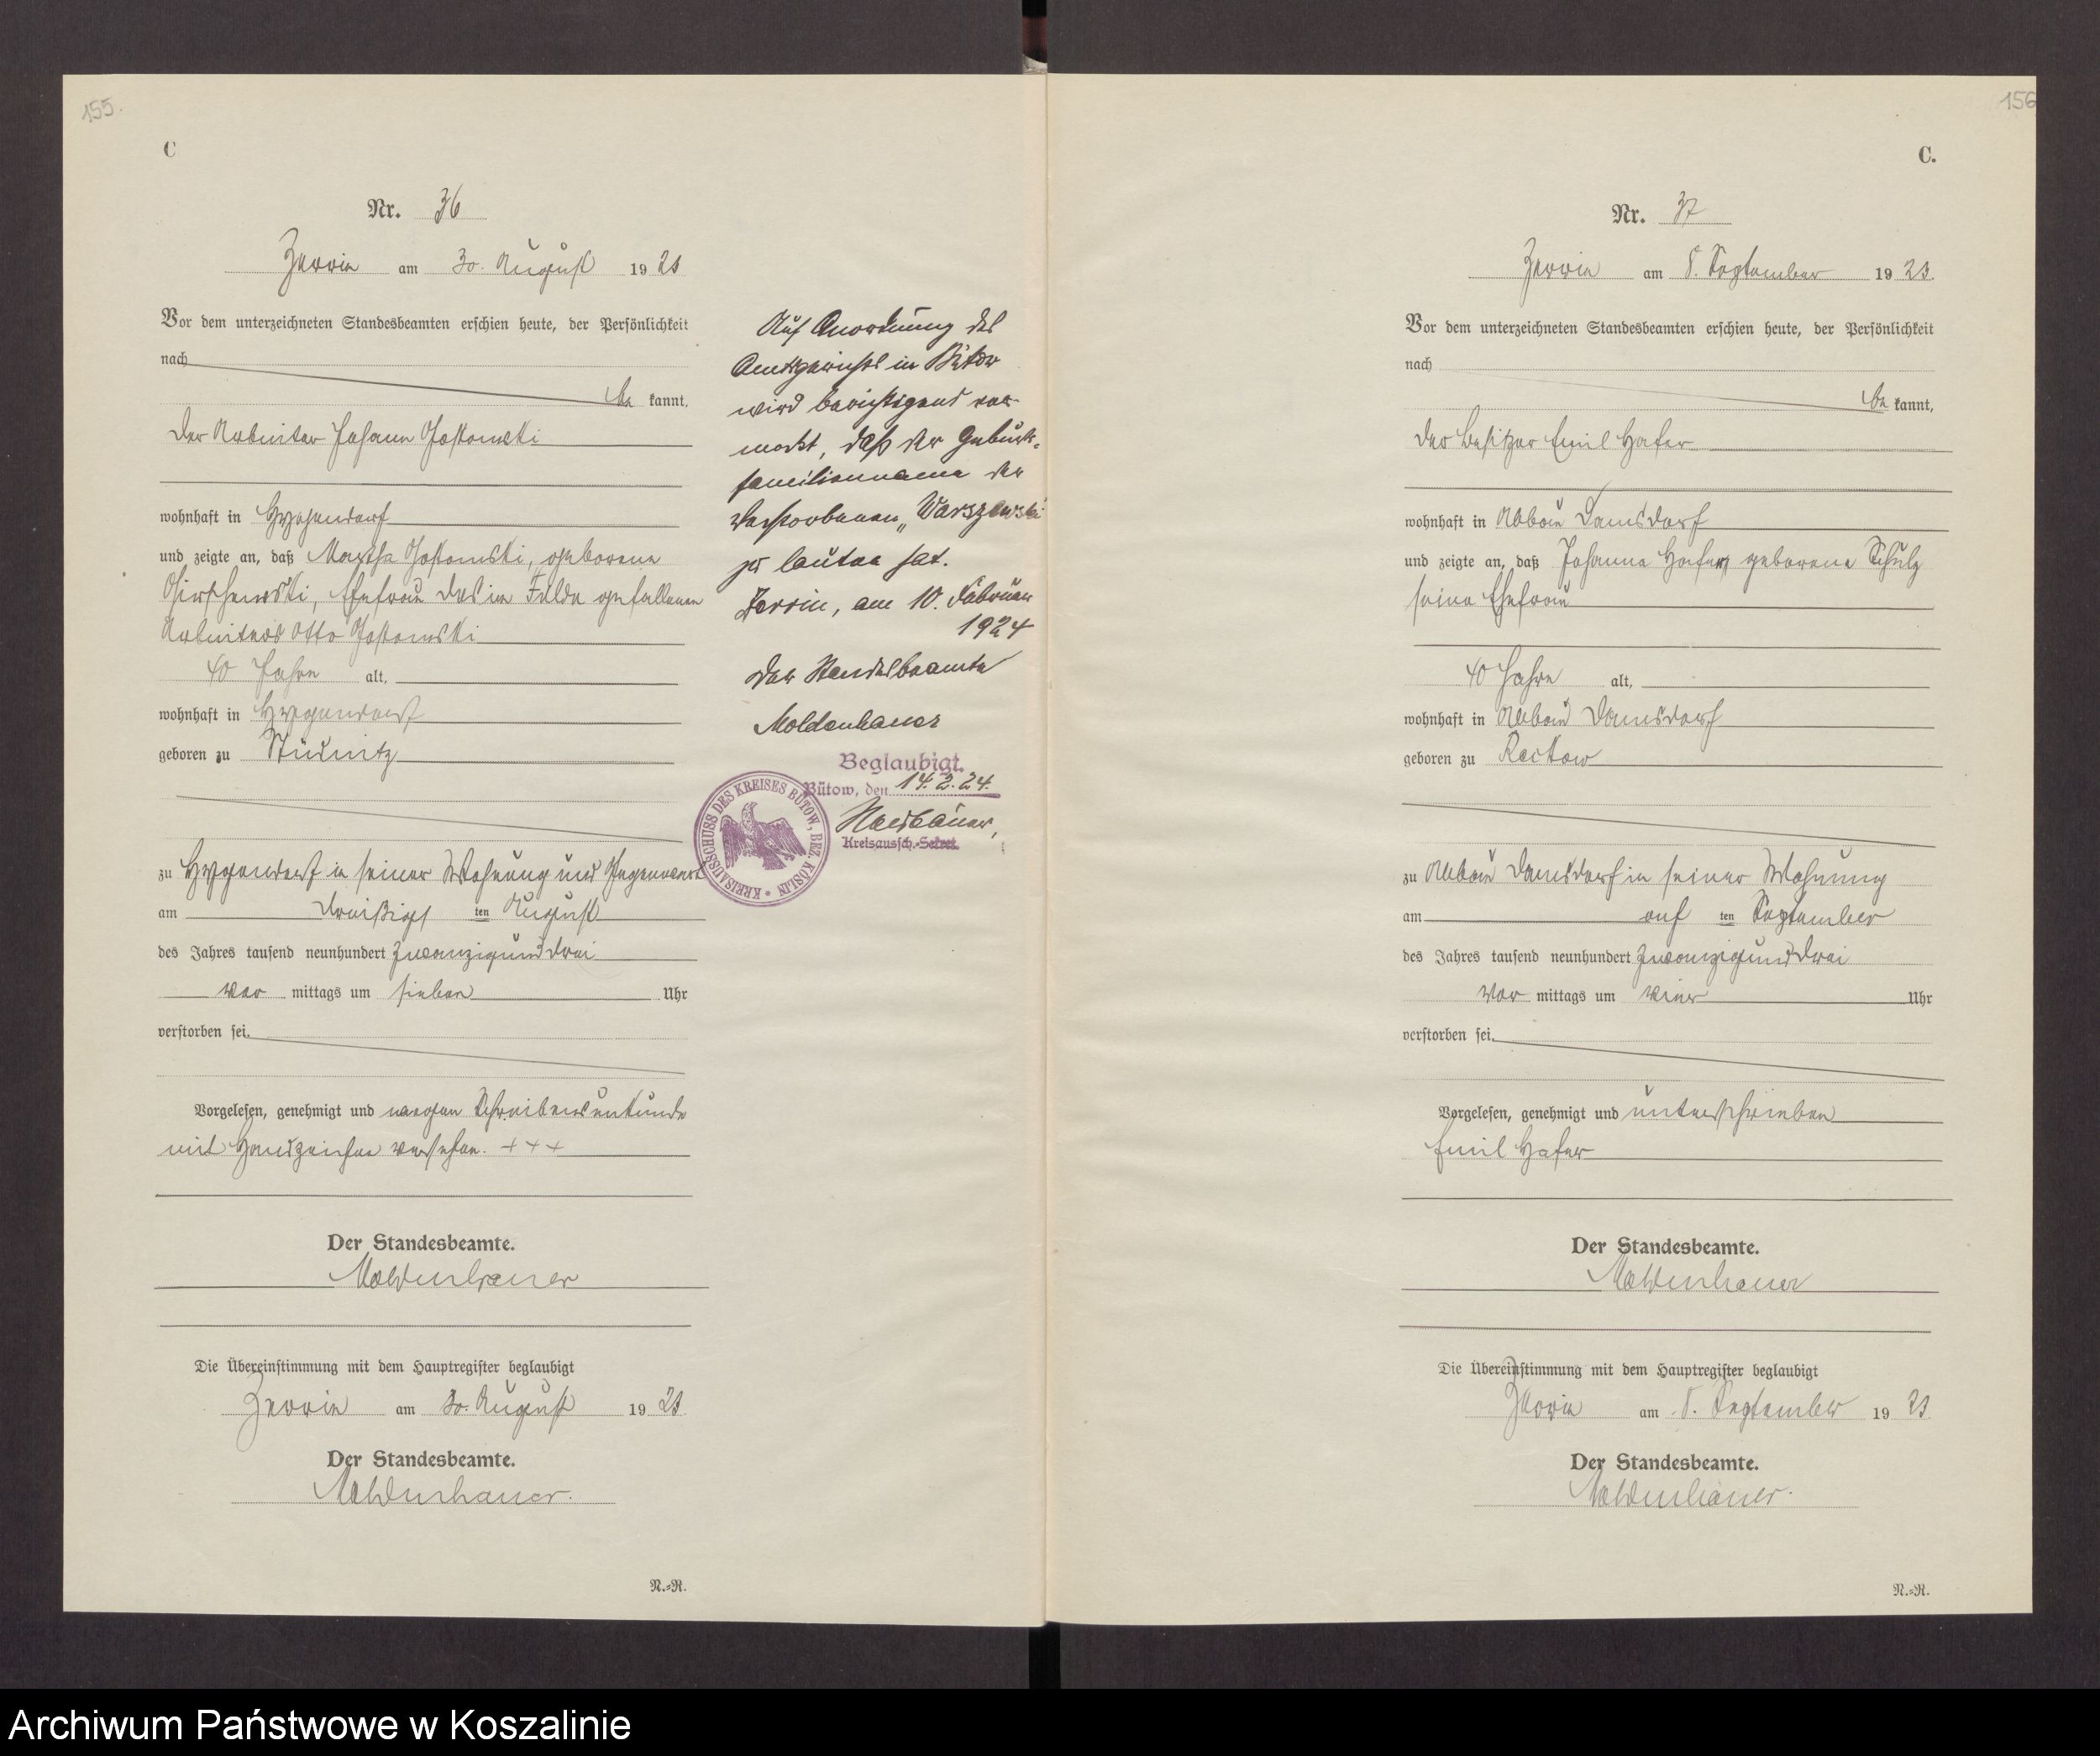 155.
C
Nr. 36
Zerrin am 30. August 1923
Vor dem unterzeichneten Standesbeamten erschien heute, der Persönlichkeit
nach
be kannt,
der Arbeiter Johann Jostomski
wohnhaft in Hygendorf
und zeigte an, daß Martha Jostomski, geborene
Ehefrau des im Felde gefallenen
Arbeiters Otto Jostomski
40 Jahre alt,
wohnhaft in Hygendorf
geboren zu Studnitz
zu Hygendorf in seiner Wohnung und Gegenwart
am dreißigs ten August
des Jahres tausend neunhundert zwanzigunddrei
vor mittags um sieben Uhr
verstorben sei.
Vorgelesen, genehmigt und wegen Schreibensunkunde
mit Handzeichen versehen. + + +
Der Standesbeamte.
Moldenhauer
Die Übereinstimmung mit dem Hauptregister beglaubigt
Zerrin am 30. August 1923
Der Standesbeamte.
Moldenhauer.
N.=R.
Auf Anordnung des
Amtsgerichts in Bütow
wird berichtigend ver-
merkt, daß der Geburts-
familienname der
Verstorbenen „Warszewski
zu lauten hat.
Zerrin, am 10. Februar
1924
Der Standesbeamte
Moldenhauer
Beglaubigt.
Bütow, den 14.2.24.
Kreisaussch.-Sekret.
KREISAUSSCHUSS DES KREISES BÜTOW, BEZ. KÖSLIN
156
C.
Nr. 37
Zerrin am 8. September 1923.
Vor dem unterzeichneten Standesbeamten erschien heute, der Persönlichkeit
nach
be kannt,
der Besitzer Emil Hafer
wohnhaft in Abbau Damsdorf
und zeigte an, daß Johanna Hafer geborene Schulz
seine Ehefrau
40 Jahre alt,
wohnhaft in Abbau Damsdorf
geboren zu Reckow
zu Abbau Damsdorf in seiner Wohnung
am ach ten September
des Jahres tausend neunhundert zwanzigunddrei
vor mittags um vier Uhr
verstorben sei.
Vorgelesen, genehmigt und unterschrieben
Emil Hafer
Der Standesbeamte.
Moldenhauer
Die Übereinstimmung mit dem Hauptregister beglaubigt
Zerrin am 8. September 1923
Der Standesbeamte.
Moldenhauer.
N.=R.
Archiwum Państwowe w Koszalinie